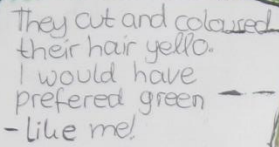 They cut and coloured
their hair yello.
I would have
prefered green - -
- like me!